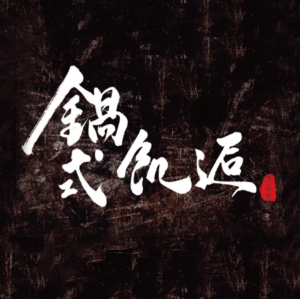 鍋式飢逅